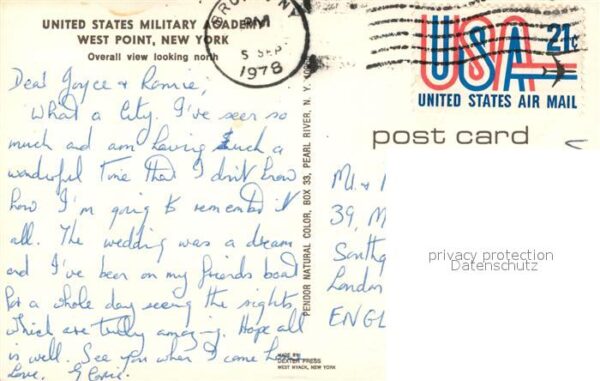 UNITED STATES MILITARY ACADEMY
WEST POINT, NEW YORK
Overall view looking north
PM
5 SEP
1978
USA 21c
UNITED STATES AIR MAIL
post card
Dear Joyce & Ronnie,
What a City. I've seen so
much and am having such a
wonderful Time that I don't know
how I'm going to remember it
all. The wedding was a dream
and I've been on my friends boat
for a whole day seeing the sights
which are truly amazing. Hope all
is well. See you when I come
Love,
PENDOR NATURAL COLOR, BOX 33, PEARL RIVER, N. Y.
MADE BY
DEXTER PRESS
WEST NYACK, NEW YORK
39, M
London
ENGL
privacy protection
Datenschutz